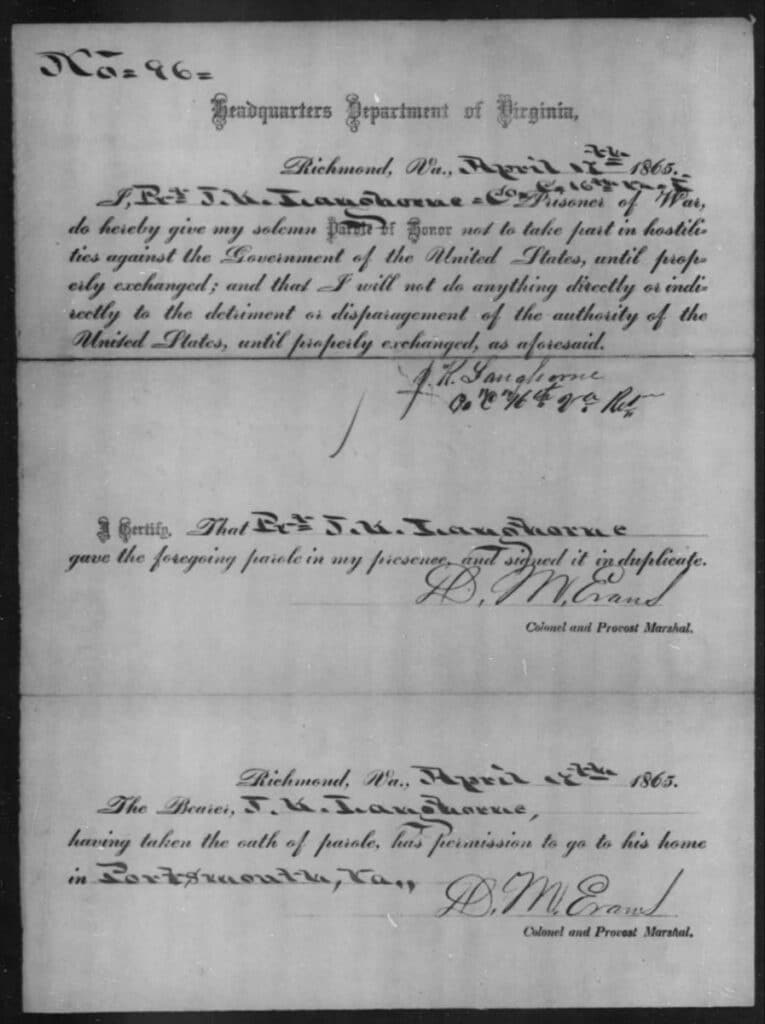 No= 96=
Headquarters Department of Virginia,
Richmond, Va., April 1865.
I, Prt J. K. Langhorne = Co C, 16th Va I Prisoner of War,
do hereby give my solemn Parole of Honor not to take part in hostili-
ties against the Government of the United States, until prop-
erly exchanged; and that I will not do anything directly or indi-
rectly to the detriment or disparagement of the authority of the
United States, until properly exchanged, as aforesaid.
J. K. Langhorne
Co "C" 16th Va Ret
I Certify, That Prt J. K. Langhorne
gave the foregoing parole in my presence, and signed it in duplicate.
D. M. Evans
Colonel and Provost Marshal.
Richmond, Va., April 1865.
The Bearer, J. K. Langhorne,
having taken the oath of parole, has permission to go to his home
in Portsmouth, Va.,
D. M. Evans
Colonel and Provost Marshal.